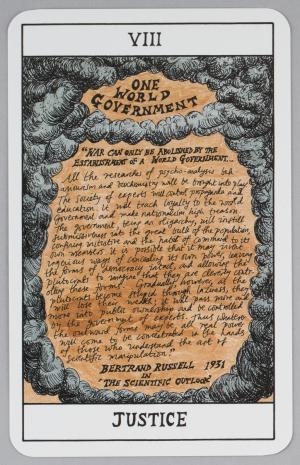 VIII
ONE
WORLD
GOVERNMENT
"WAR CAN ONLY BE ABOLISHED BY THE
ESTABLISHMENT OF A WORLD GOVERNMENT...
All the researches of psycho-analysis beh-
aviourism and biochemistry will be brought into play
The society of experts will control propaganda and
education. it will teach loyalty to the world
Government and make nationalism high treason
The government, being an oligarchy, will instill
submissiveness into the great bulk of the population,
confining initiative and the habit of command to its
own members. it is possible that it may invent
ingenious ways of concealing its own power, leaving
the forms of democracy intact, and allowing the
plutocrats to imagine that they are cleverly contr-
olling these forms. Gradually however, as the
plutocrats become stupid through laziness, they
will lose their wealth; it will pass more and
more into public ownership and be controlled
by the government of experts. Thus whatever
the outward forms may be, all real power
will come to be concentrated in the hands
of those who understand the art of
scientific manipulation."
BERTRAND RUSSELL 1931
IN
"THE SCIENTIFIC OUTLOOK"
JUSTICE